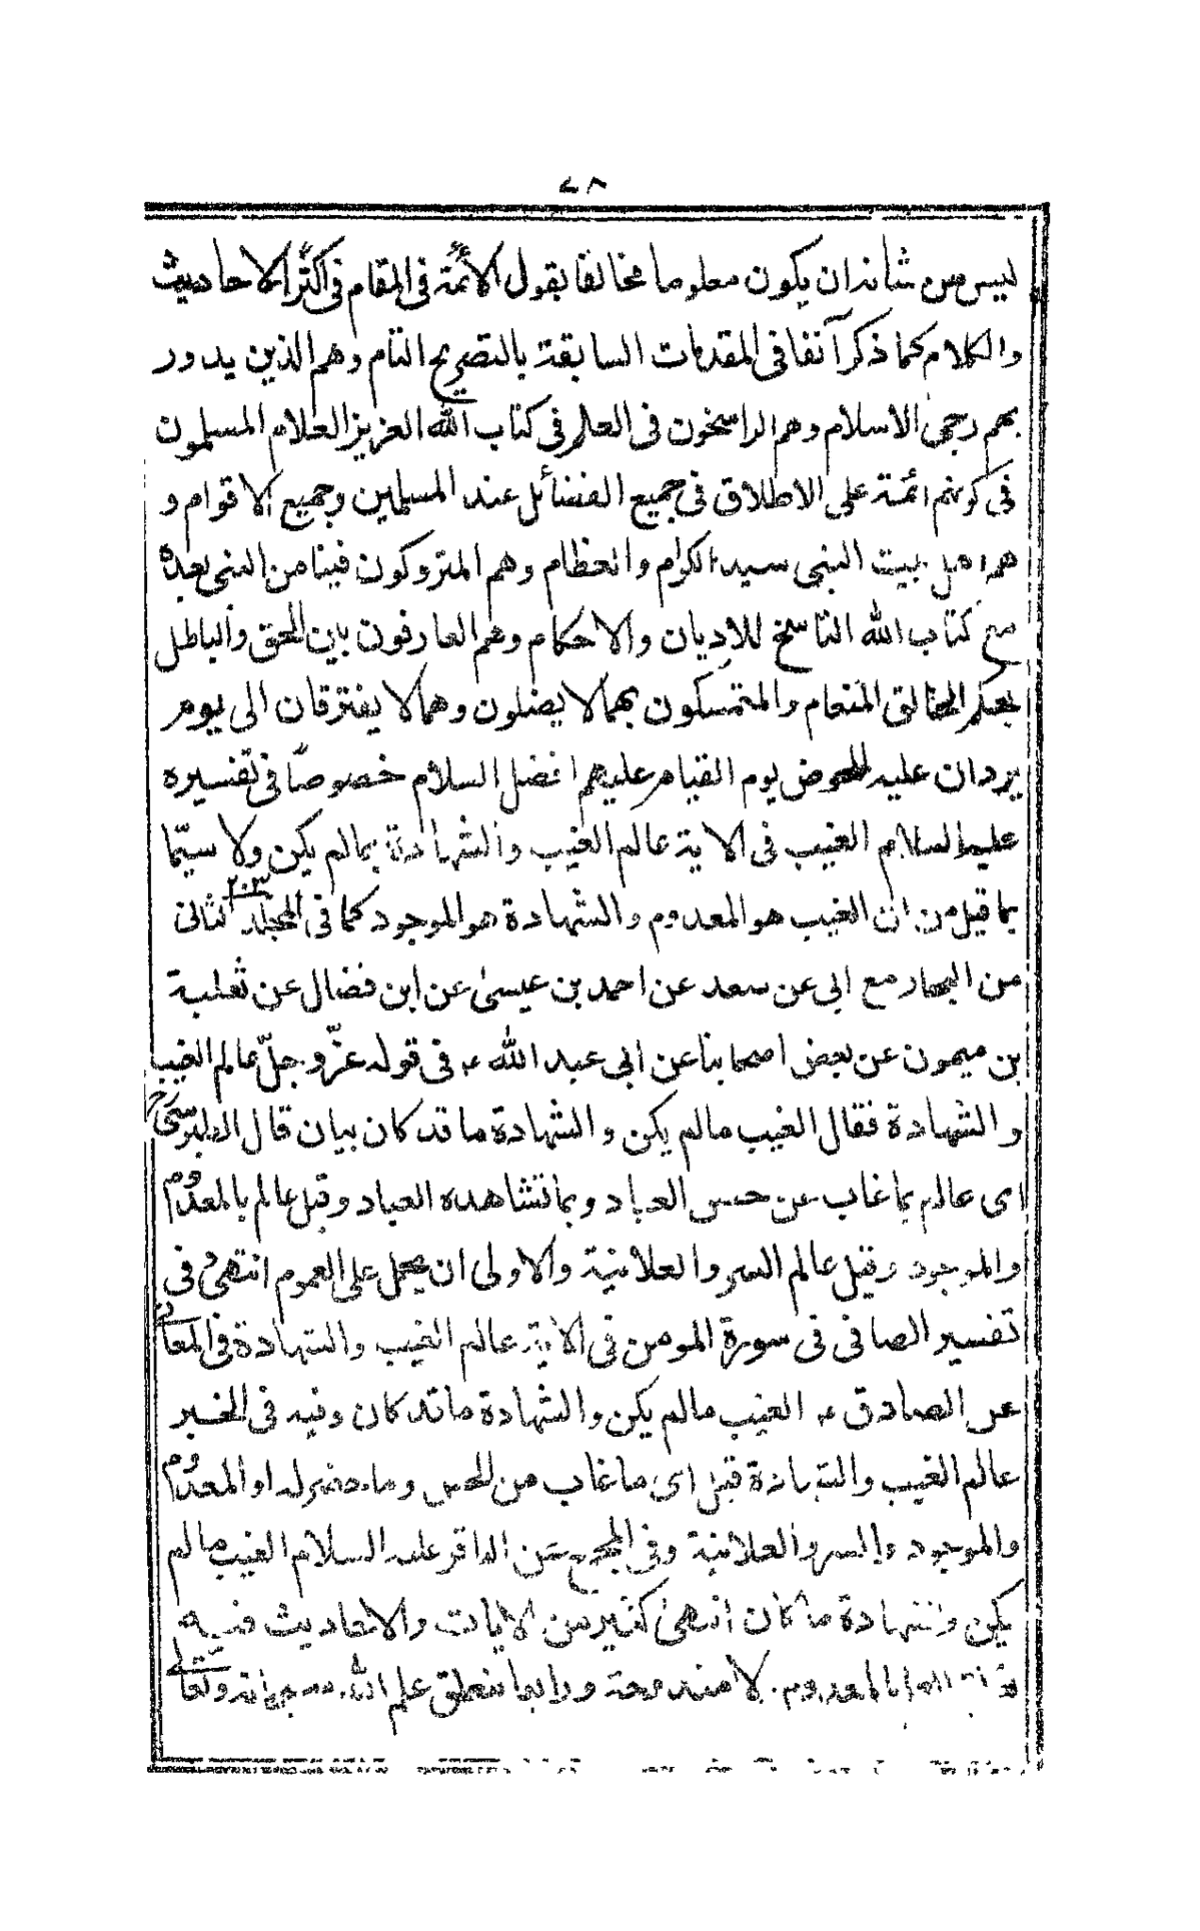 ٧٨
ليس من شانه ان يكون معلوما مخالفا بقول الأئمة فى المقام فى اكثر الاحاديث
والكلام كما ذكر آنفا فى المقدمات السابقة بالتصريح التام وهم الذين يدور
بهم رحى الاسلام وهم الراسخون فى العلم فى كتاب الله العزيز العلام المسلمون
فى كونهم ائمة على الاطلاق فى جميع الفضائل عند المسلمين وجميع الاقوام و
هم اهل بيت النبى سيد الكرام والعظام وهم المتروكون فينا من النبى بعده
مع كتاب الله الناسخ للاديان والاحكام وهم العارفون بين الحق والباطل
بعلم الخالق المنعام والمتمسكون بهما لا يضلون وهما لا يفترقان الى يوم
يردان عليه الحوض يوم القيام عليهم افضل السلام خصوصًا فى تفسيره
عليه السلام الغيب فى الاية عالم الغيب والشهادة بمالم يكن ولا سيّما
بما قيل من ان الغيب هو المعدوم والشهادة هو الموجود كما فى المجلد الثانى
٢٠٣
من البحار مع ابى عن سعد عن احمد بن عيسى عن ابن فضال عن ثعلبة
بن ميمون عن بعض اصحابنا عن ابى عبد الله ع فى قوله عزّ وجلّ عالم الغيب
والشهادة فقال الغيب مالم يكن والشهادة ما قد كان بيان قال الطبرسى
اى عالم بما غاب عن حس العباد وبما تشاهده العباد وقيل عالم بالمعدوم
والموجود وقيل عالم السر والعلانية والاولى ان يحمل على العموم انتهى وفى
تفسير الصافى فى سورة المومن فى الاية عالم الغيب والشهادة فى المعانى
عن الصادق ع الغيب مالم يكن والشهادة ما قد كان وفيه فى الخبر
عالم الغيب والشهادة قيل اى ما غاب من الحس وما حضر له او المعدوم
والموجود والسر والعلانية وفى المجمع عن الباقر عليه السلام الغيب مالم
يكن والشهادة ما كان انتهى كثير من الايات والاحاديث فيه
بالمعدوم لا منه وتعالى